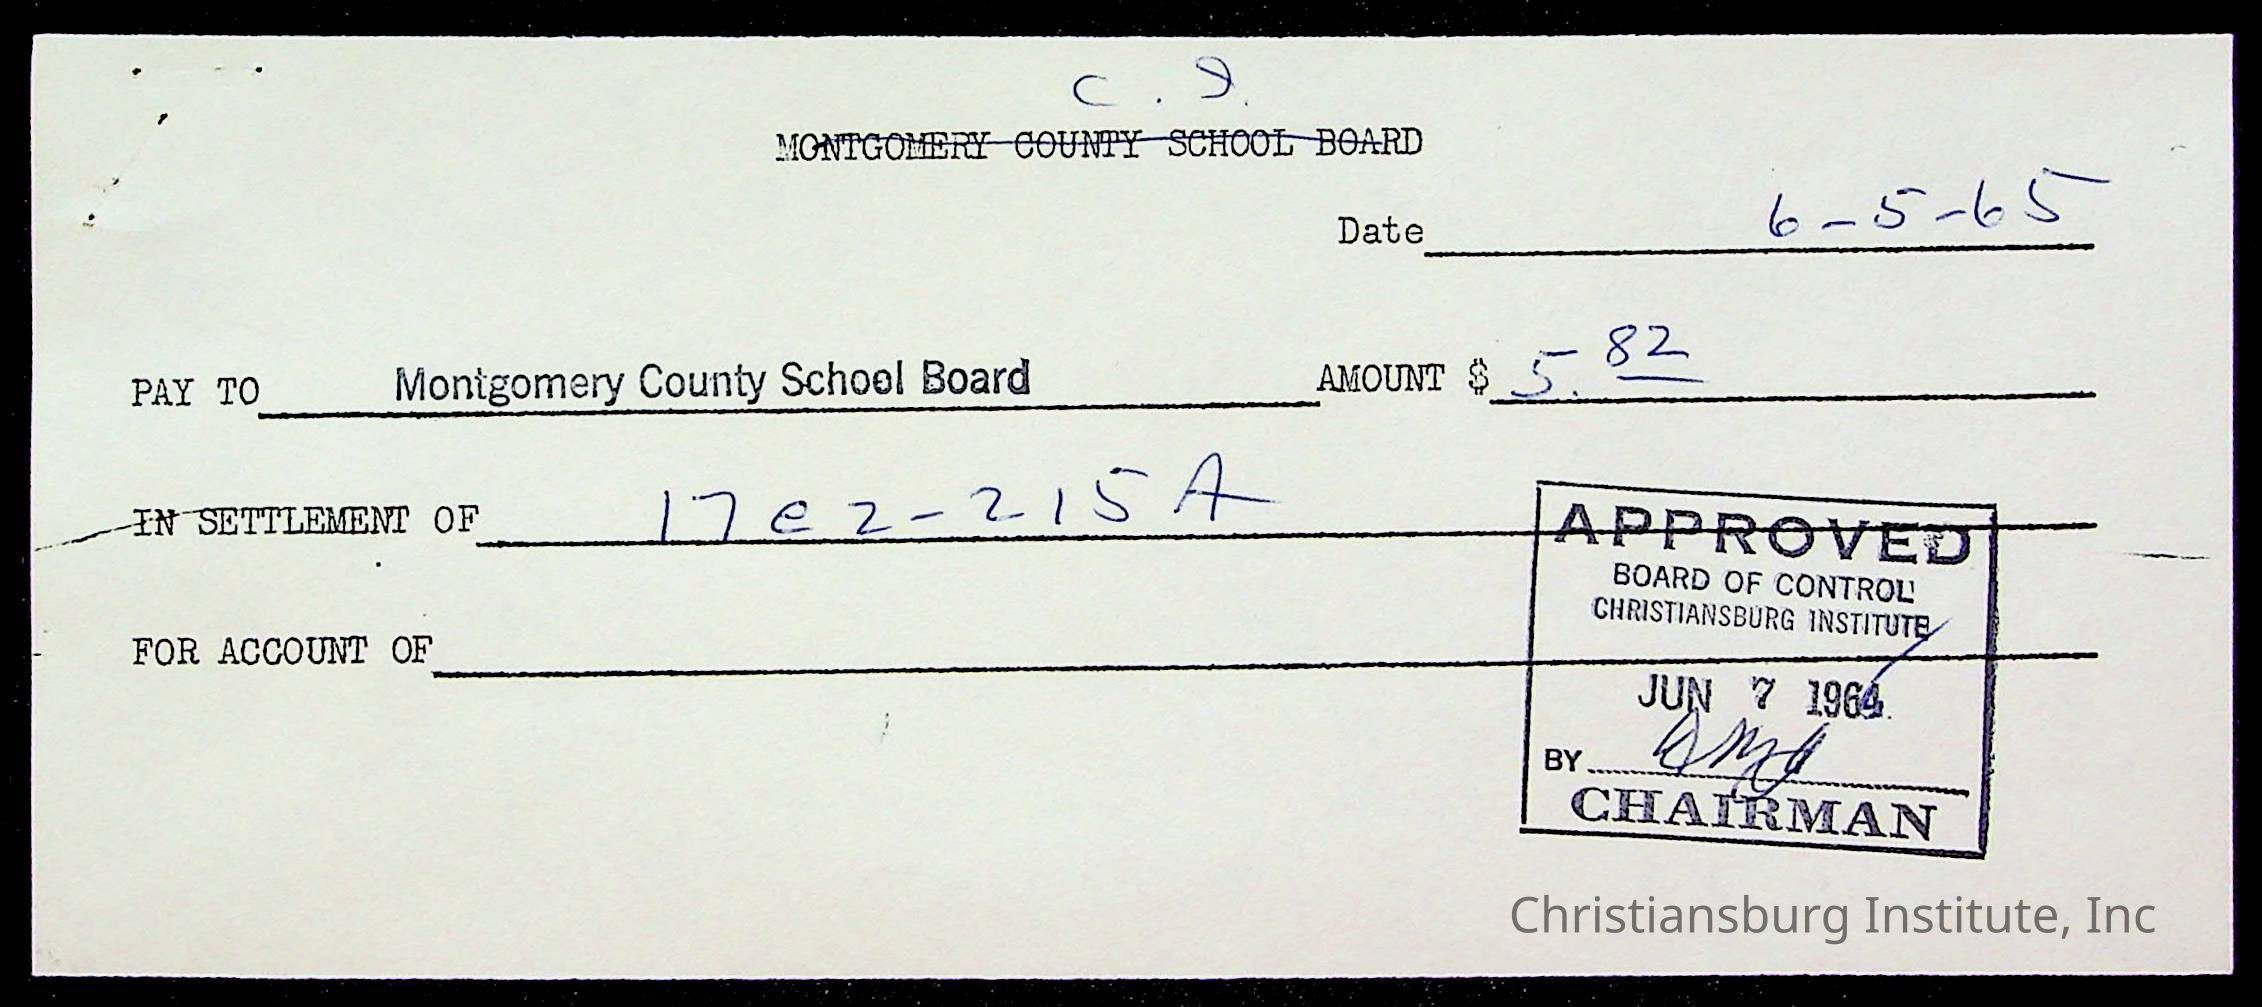 C. I.
MONTGOMERY COUNTY SCHOOL BOARD
Date 6-5-65
PAY TO Montgomery County School Board AMOUNT $ 5.82
IN SETTLEMENT OF 17e2-215A
FOR ACCOUNT OF
APPROVED
BOARD OF CONTROL
CHRISTIANSBURG INSTITUTE
JUN 7 1964
BY
CHAIRMAN
Christiansburg Institute, Inc